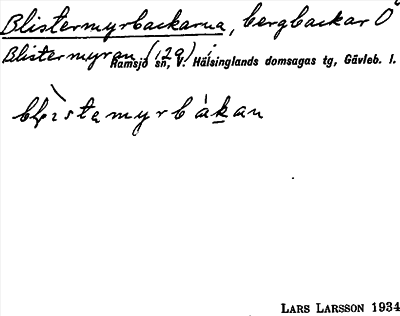 Blistermyrbackarna, bergbackar Ö
Blistermyran (129) i
Ramsjö sn, V. Hälsinglands domsagas tg, Gävleb. l.
blìstemyrbàkan
LARS LARSSON 1934